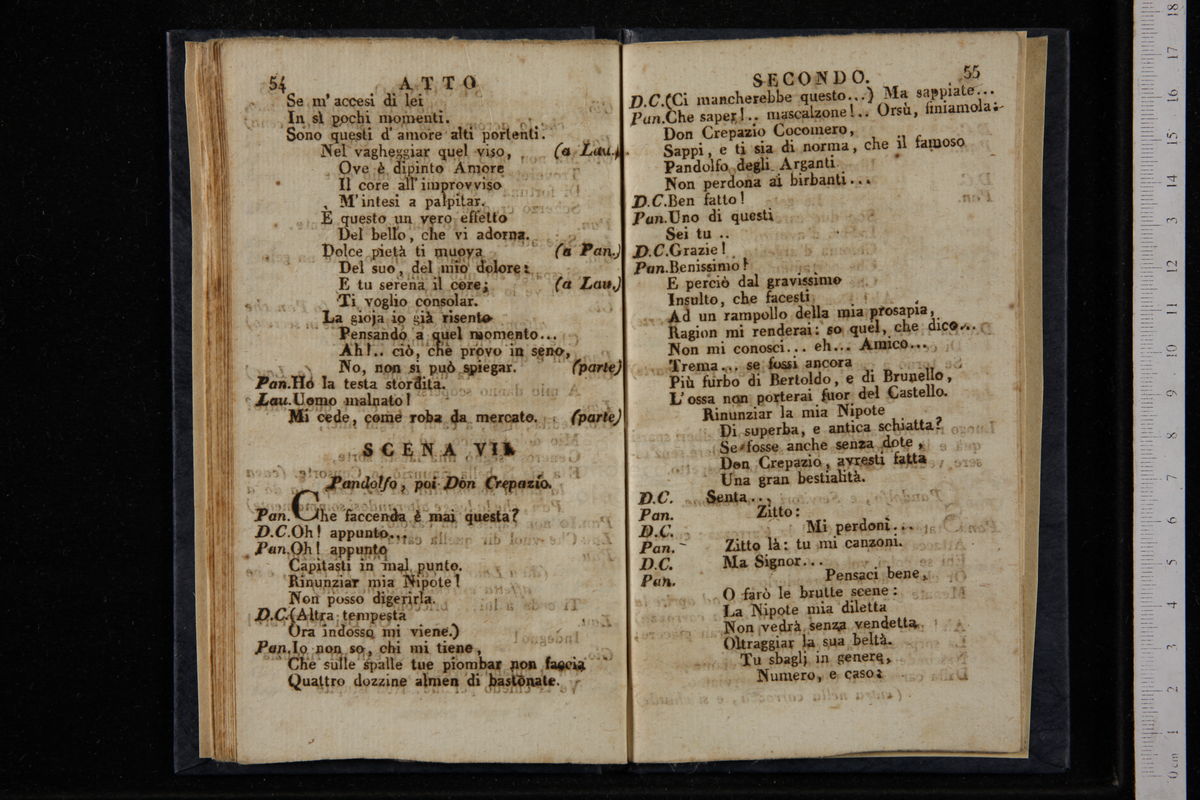 54 ATTO
Se m'accesi di lei
In sì pochi momenti.
Sono questi d'amore alti portenti.
Nel vagheggiar quel viso, (a Lau.)
Ove è dipinto Amore
Il core all'improvviso
M'intesi a palpitar.
E questo un vero effetto
Del bello, che vi adorna.
Dolce pietà ti muova (a Pan.)
Del suo, del mio dolore:
E tu serena il core; (a Lau.)
Ti voglio consolar.
La gioja io già risento
Pensando a quel momento...
Ah!.. ciò, che provo in seno,
No, non si può spiegar. (parte)
Pan. Ho la testa stordita.
Lau. Uomo malnato!
Mi cede, come roba da mercato. (parte)
SCENA VII.
Pandolfo, poi Don Crepazio.
Pan. Che faccenda è mai questa?
D.C. Oh! appunto...
Pan. Oh! appunto
Capitasti in mal punto.
Rinunziar mia Nipote!
Non posso digerirla.
D.C. (Altra tempesta
Ora indosso mi viene.)
Pan. Io non so, chi mi tiene,
Che sulle spalle tue piombar non faccia
Quattro dozzine almen di bastonate.
SECONDO. 55
D.C. (Ci mancherebbe questo...) Ma sappiate...
Pan. Che saper!.. mascalzone!.. Orsù, finiamola:
Don Crepazio Cocomero,
Sappi, e ti sia di norma, che il famoso
Pandolfo degli Arganti
Non perdona ai birbanti...
D.C. Ben fatto!
Pan. Uno di questi
Sei tu ..
D.C. Grazie!
Pan. Benissimo!
E perciò dal gravissimo
Insulto, che facesti
Ad un rampollo della mia prosapia,
Ragion mi renderai: so quel, che dico...
Non mi conosci... eh... Amico...
Trema... se fossi ancora
Più furbo di Bertoldo, e di Brunello,
L'ossa non porterai fuor del Castello.
Rinunziar la mia Nipote
Di superba, e antica schiatta?
Se fosse anche senza dote,
Don Crepazio, avresti fatta
Una gran bestialità.
D.C. Senta...
Pan. Zitto:
D.C. Mi perdoni...
Pan. Zitto là: tu mi canzoni.
D.C. Ma Signor...
Pan. Pensaci bene,
O farò le brutte scene:
La Nipote mia diletta
Non vedrà senza vendetta
Oltraggiar la sua beltà.
Tu sbaglj in genere,
Numero, e caso: